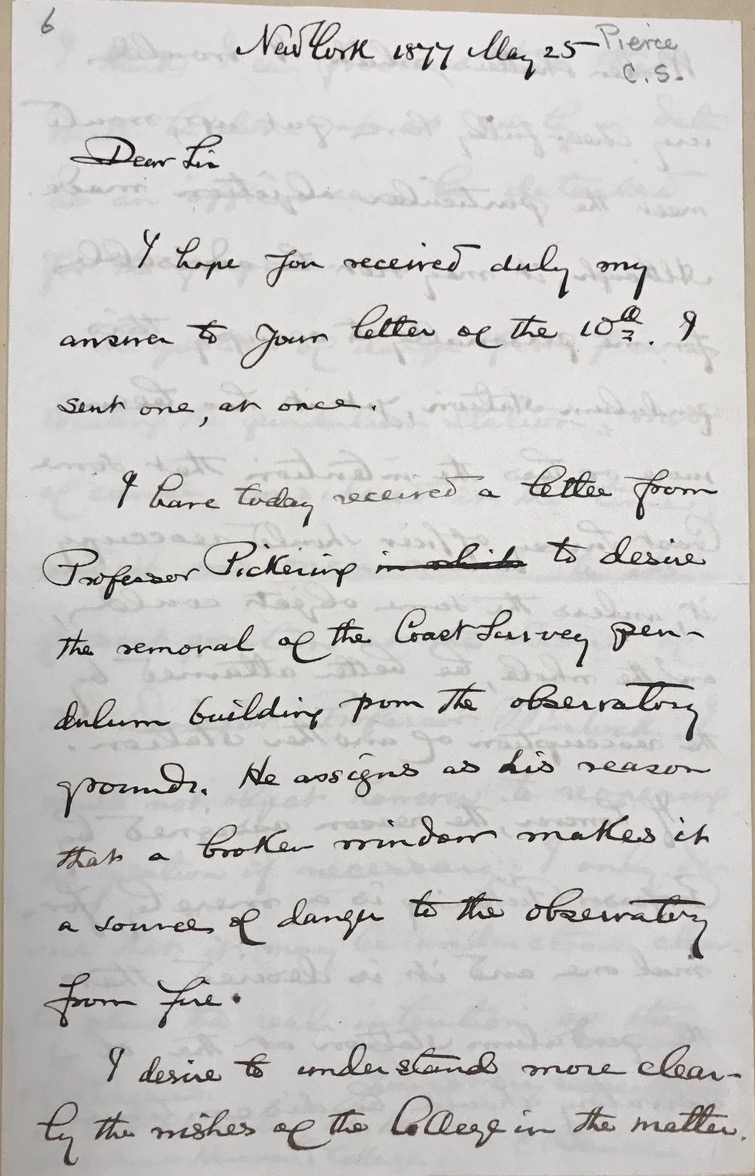 6
New York 1877 May 25
Pierce
C.S.
Dear Sir
I hope you received duly my
answer to your letter of the 10th. I
sent one, at once.
I have today received a letter from
Professor Pickering in which to desire
the removal of the Coast Survey pen-
dulum building from the observatory
grounds. He assigns as his reason
that a broken window makes it
a source of danger to the observatory
from fire.
I desire to understand more clear-
ly the wishes of the College in the matter.